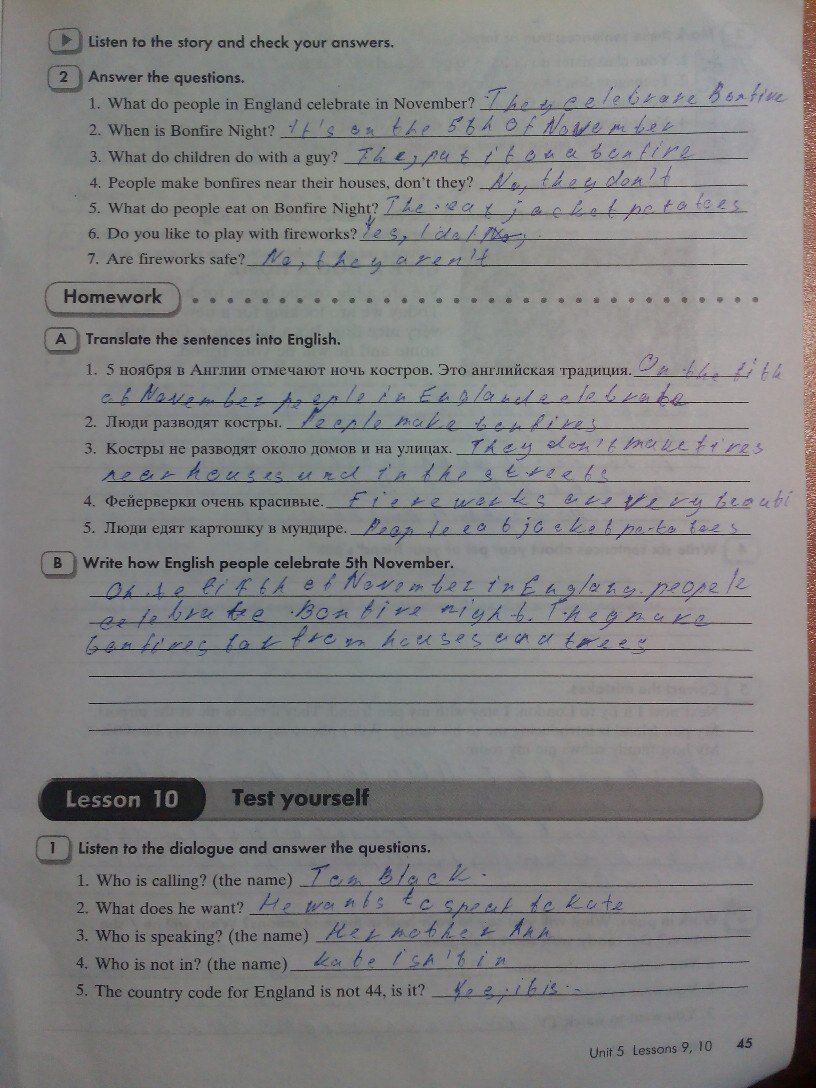 Listen to the story and check your answers.
2 Answer the questions.
1. What do people in England celebrate in November? They celebrare Bonfire
2. When is Bonfire Night? It's on the 5th of November
3. What do children do with a guy? They put it on a bonfire
4. People make bonfires near their houses, don't they? No, they don't
5. What do people eat on Bonfire Night? They eat jacket potatoes
6. Do you like to play with fireworks? Yes, I do
7. Are fireworks safe? No, they aren't
Homework
A Translate the sentences into English.
1. 5 ноября в Англии отмечают ночь костров. Это английская традиция. On the fith
of November people in England celebrate
2. Люди разводят костры. People make bonfires
3. Костры не разводят около домов и на улицах. They don't make fires
near houses and in the streets
4. Фейерверки очень красивые. Fiereworks are very beauti
5. Люди едят картошку в мундире. People eat jacket patatoes
B Write how English people celebrate 5th November.
On the fifth of November in England people
celebrate Bonfire night. They make
bonfires far from houses and trees
Lesson 10 Test yourself
1 Listen to the dialogue and answer the questions.
1. Who is calling? (the name) Tom Black.
2. What does he want? He wants to speat to Kate
3. Who is speaking? (the name) Her mother Ann
4. Who is not in? (the name) Kate isn't in
5. The country code for England is not 44, is it? Yes, it is.
Unit 5 Lessons 9, 10 45